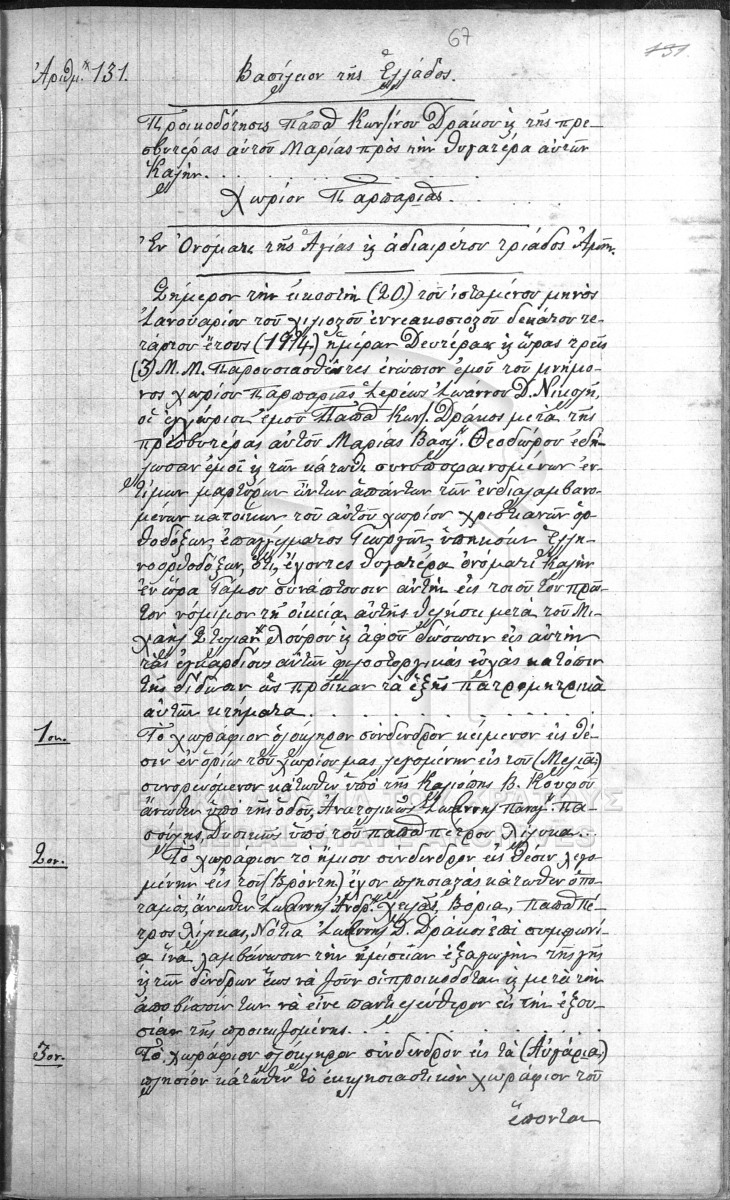 67
131
Ἀριθμ. 131.
Βασίλειον τῆς Ἑλλάδος.
Προικοδότησις Παπᾶ Κων/ίνου Δράκου & τῆς πρε-
σβυτέρας αὐτοῦ Μαρίας πρὸς τὴν θυγατέρα αὐτῶν
Καλὴν
Χωρίον Παρπαριᾶς
Ἐν Ὀνόματι τῆς Ἁγίας & ἀδιαιρέτου τριάδος Ἀμήν.
Σήμερον τὴν εἰκοστὴν (20) τοῦ ἱσταμένου μηνὸς
Ἰανουαρίου τοῦ χιλιοστοῦ ἐννεακοσιοστοῦ δεκάτου τε-
τάρτου ἔτους (1914) ἡμέραν Δευτέραν & ὥρας τρεῖς
(3) Μ.Μ. Παρουσιασθέντες ἐνώπιον ἐμοῦ τοῦ μνήμο-
νος χωρίου Παρπαριᾶς Ἱερέως Ἰωάννου Δ. Νικολῆ,
οἱ ἐγχώριοι ἐμοῦ Παπᾶ Κων. Δράκος μετὰ τῆς
πρεσβυτέρας αὐτοῦ Μαρίας Βασιλ. Θεοδώρου ἐδή-
λωσαν ἐμοὶ & τῶν κάτωθι συνυπογραινομένων ἐν-
τίμων μαρτύρων ὄντων ἁπάντων τῶν ἐνδιαλαμβανο-
μένων κατοίκων τοῦ αὐτοῦ χωρίου χριστιανῶν ὀρ-
θοδόξων, ἐπαγγέλματος Γεωργῶν, ὑπηκόων Ἑλλη-
νοορθοδόξων, ὅτι, ἔχοντες θυγατέρα ὀνόματι Καλὴν
ἐν ὥρᾳ Γάμου συνάπτουσιν αὐτὴν εἰς τοιοῦτον πρῶ-
τον νόμιμον τῇ οἰκείᾳ αὐτῆς θελήσει μετὰ τοῦ Μι-
χαὴλ Στυλιαν. Λούρου & ἀφοῦ δώσωσιν εἰς αὐτὴν
τὰς ἐγκαρδίους αὐτῶν φιλοστοργικὰς εὐχὰς κατόπιν
τῆς δίδωσιν ὡς προῖκαν τὰ ἑξῆς πατρομητρικὰ
αὐτῶν κτήματα
1ον. Τὸ χωράφιον ὁλόκληρον σύνδενδρον κείμενον εἰς θέ-
σιν ἐν ὁρίῳ τοῦ χωρίου μας, λεγομένην εἰς τοῦ (Μελιᾶ)
συνορευόμενον κάτωθεν ὑπὸ τῆς Καλιόπης Β. Κουφοῦ
ἄνωθεν ὑπὸ τῆς ὁδοῦ, Ἀνατολικῶς Ἰωάννης Παναγ. Πα-
σούλης, Δυτικῶς ὑπὸ τοῦ παπᾶ Πέτρου Λίλυκα
2ον. Τὸ χωράφιον τὸ ἥμισυ σύνδενδρον εἰς θέσιν λεγο-
μένην εἰς τοῦ (Βρόντη) ἔχον πλησιαστὰς κάτωθεν ὁ πο-
ταμός, ἄνωθεν Ἰωάννης Ἀνδρ. Χελᾶς, Βόρια, παπᾶ Πέ-
τρος Λίλικας, Νότια Ἰωάννης Δ. Δράκος ἐπὶ συμφωνί-
ᾳ ἵνα λαμβάνωσιν τὴν ἡμίσειαν ἐξαγωγὴν τῆς γῆς
& τῶν δένδρων ἕως νὰ ζοῦν οἱ προικοδόται & μετὰ τὴν
ἀποβίωσίν των νὰ εἶνε παντελεύθερον εἰς τὴν ἐξου-
σίαν τῆς προικιζομένης
3ον. Τὸ χωράφιον ὁλόκληρον σύνδενδρον εἰς τὰ (Αὐγάρια)
πλησίον κάτωθεν τὸ ἐκκλησιαστικὸν χωράφιον τοῦ
ἕπονται